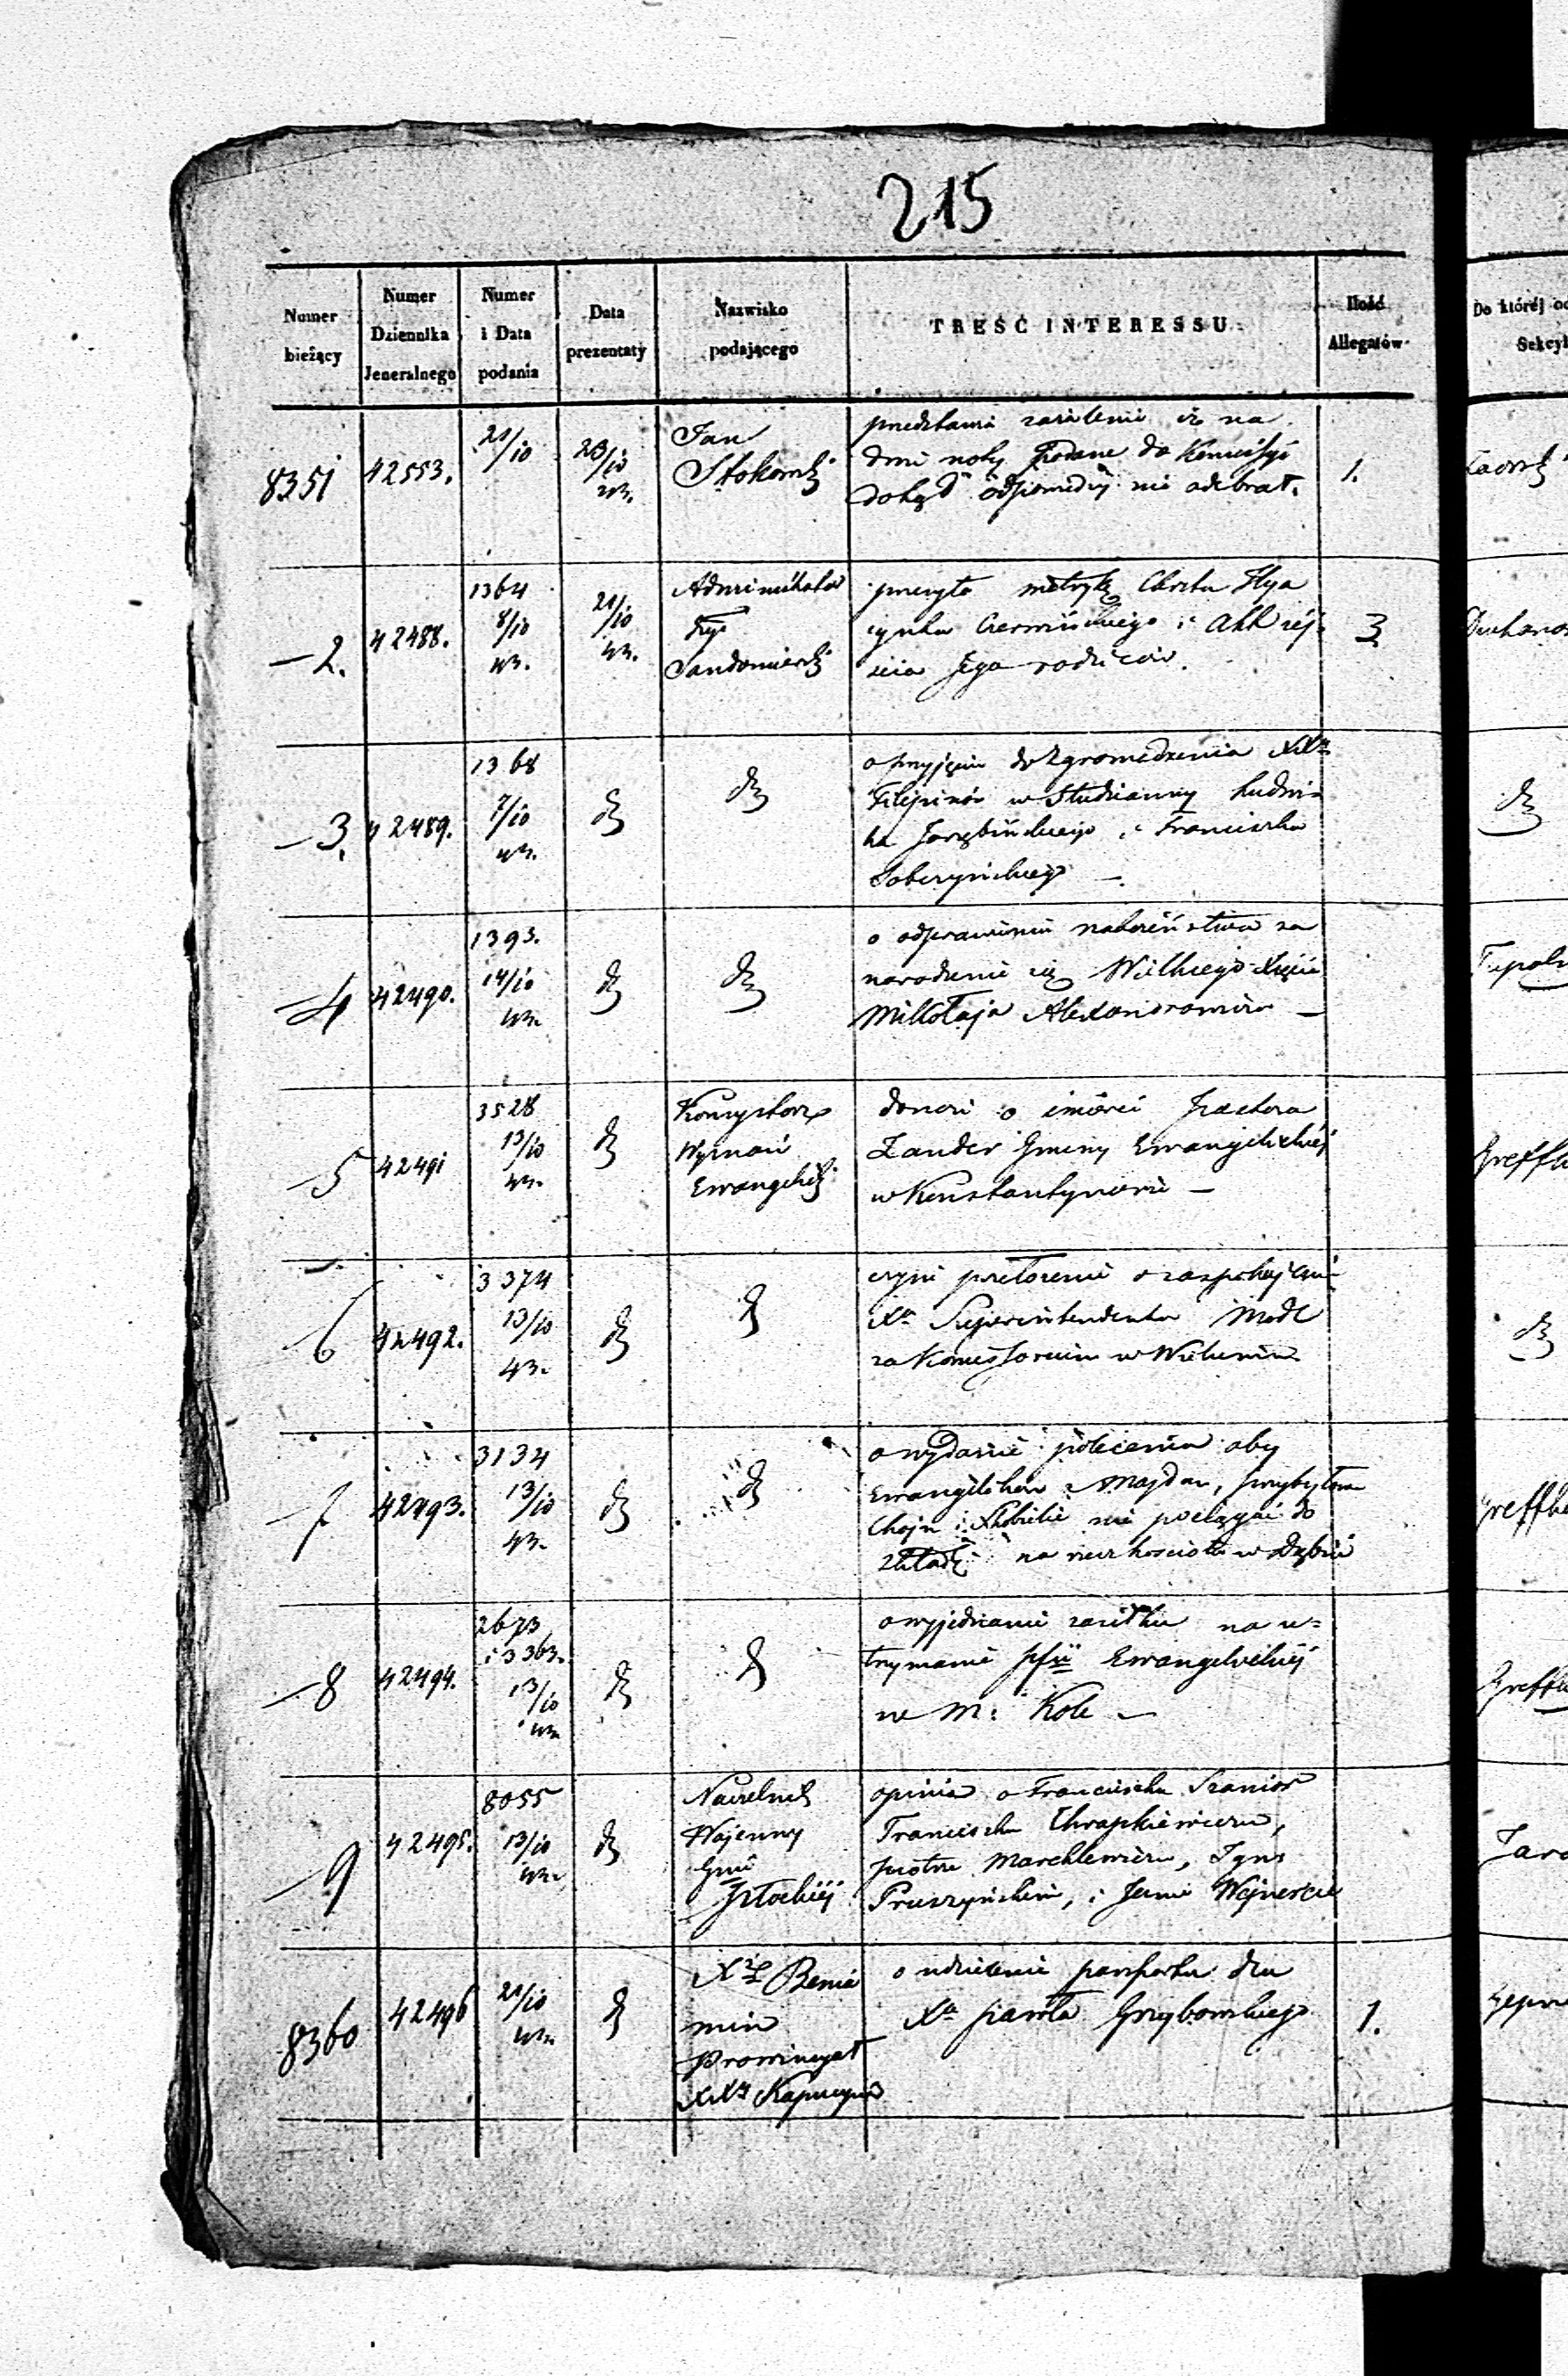 215
Numer bieżący
Numer Dziennika Jeneralnego
Numer i Data podania
Data prezentaty
Nazwisko podającego
TREŚĆ INTERESSU
Ilość Allegatów
Do której
8351 42553. 21/10 23/10 43. Jan
przedstawia iż na
dwie noty podane do Kommissyi
dotąd odpowiedzi nie odebrał.
1.
2. 42488. 1364 8/10 43. 21/10 43. Administrator
Dyi
Sandomierskij
przesyła metrykę Chrztu Ilya
synka Czermińskiego i Akt zej-
ścia Jego rodziców.
3
3. 42489. 1368 7/10 43. d d
o przyjęciu do Zgromadzenia XX
Filipinów w Studzianny Ludwi-
ka Jarzębińskiego i Franciszka
Soberzyńskiego —
d
4 42490. 1393. 14/10 43. d d
o odprawieniu nabożeństwa za
narodzenie się Wielkiego Xięcia
Mikołaja Alexandrowicza —
5 42491 3528 13/10 43. d Konsystorz
Wyznań
Ewangelick
donosi o śmierci Pastora
Zander Gminy Ewangelickiej
w Konstantynowie —
6 42492. 3374 13/10 43. d d
czyni przełożenie o zaspokojenie
Xa Superintendenta Modl
za Komissorium w Wieluniu
d
7 42493. 3134 13/10 43. d d
o wydanie polecenia aby
Ewangelików z Majdan, Przybyłow
Chojn i nie pociągać do
składki na rzecz kościoła w Dąbiu
8 42494. 2673 i 3363. 13/10 43. d d
o wyjednanie zasiłku na u-
trzymanie pfii Ewangelickiej
w M. Kole —
9 42495. 8055 13/10 43. d Naczelnik
Wojenny
Gnii
Płockiej
opinia o Franciszku Szanior
Franciszku Chrapkiewiczu,
Piotrze Marchlewiczu, Igna
Pruszyńskim, i Janie Wejnercie
8360 42496 21/10 43. d Xdz Benia
min
Prowincyał
XXy Kapucynów
o udzielenie paszportu dla
Xa Pawła Grzybowskiego
1.